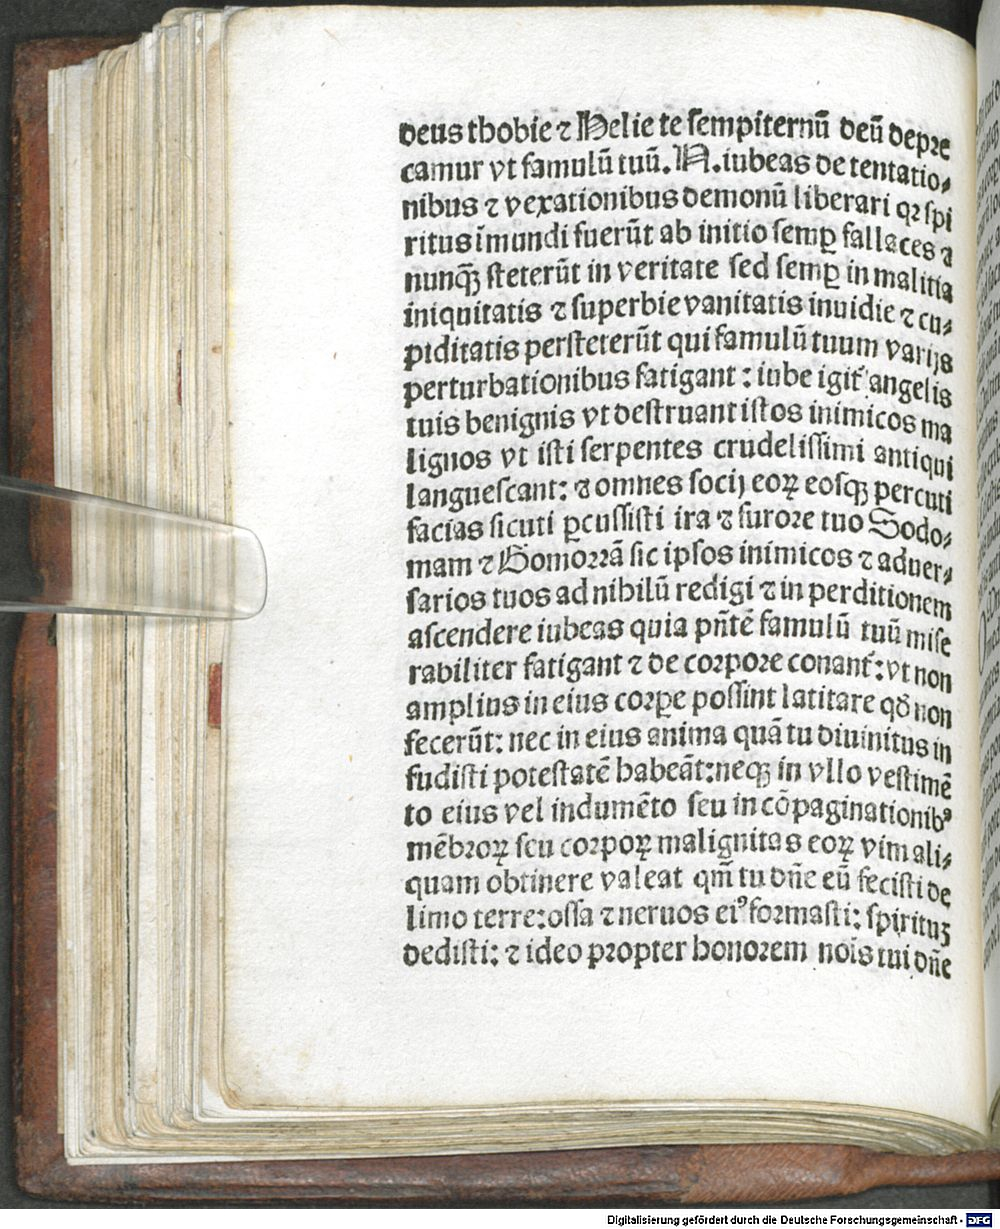 deus thobie ⁊ Helie te sempiternū deū depre
camur vt famulū tuū. N. iubeas de tentatio⸗
nibus ⁊ vexationibus demonū liberari qꝛ spi
ritus īmundi fuerūt ab initio semꝑ fallaces ⁊
nunqꝫ steterūt in veritate sed semꝑ in malitia
iniquitatis ⁊ superbie vanitatis inuidie ⁊ cu⸗
piditatis persteterūt qui famulū tuum varijs
perturbationibus fatigant : iube igit̃ angelis
tuis benignis vt destruant istos inimicos ma
lignos vt isti serpentes crudelissimi antiqui
languescant: ⁊ omnes socij eoꝝ eosqꝫ percuti
facias sicuti ꝑcussisti ira ⁊ furore tuo Sodo⸗
mam ⁊ Gomorrā sic ipsos inimicos ⁊ aduer⸗
sarios tuos ad nihilū redigi ⁊ in perditionem
ascendere iubeas quia pn̄tē famulū tuū mise
rabiliter fatigant ⁊ de corpore conant̃: vt non
amplius in eius corꝑe possint latitare qđ non
fecerūt: nec in eius anima quā tu diuinitus in
fudisti potestatē habeāt: neqꝫ in vllo vestimē
to eius vel indumēto seu in cōpaginationibꝰ
mēbroꝝ seu corpoꝝ malignitas eoꝝ vim ali⸗
quam obtinere valeat qm̄ tu dn̄e eū fecisti de
limo terre: ossa ⁊ neruos eiꝰ formasti: spirituꝫ
dedisti: ⁊ ideo propter honorem nōis tui dn̄e
Digitalisierung gefördert durch die Deutsche Forschungsgemeinschaft - DFG